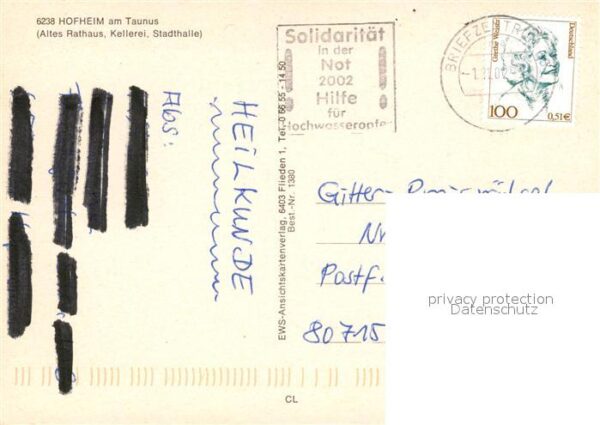 6238 HOFHEIM am Taunus
(Altes Rathaus, Kellerei, Stadthalle)
Solidarität
in der
Not
2002
Hilfe
für
Hochwasseropfer
BRIEFZENTRUM
Deutschland
100
0,51€
Abs:
HEILKUNDE
EWS-Ansichtskartenverlag, 6403 Flieden 1, Tel. 0 66 55 - 14 50
Best.-Nr. 1380
Gitter-
Nr
Postf.
80715
privacy protection
Datenschutz
CL